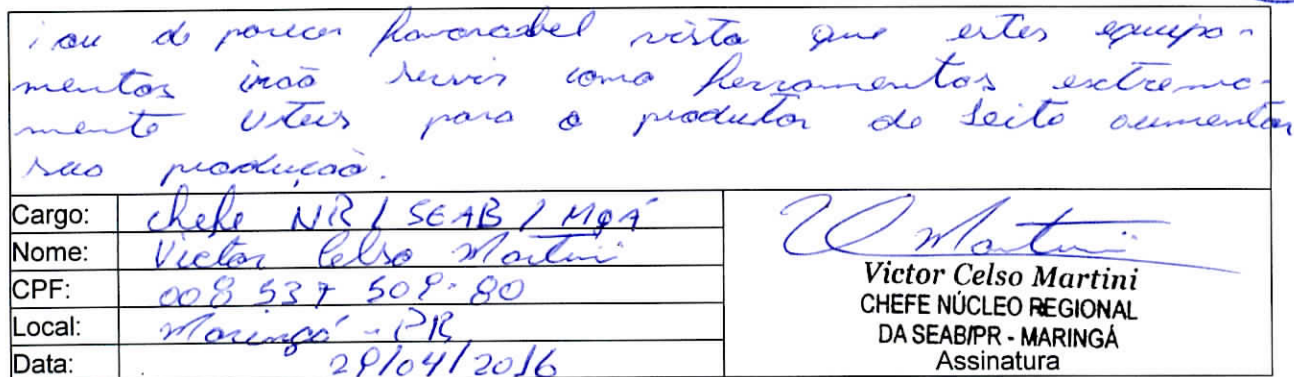 sou de parecer favoravel visto que estes equipa-
mentos irão servir como ferramentas extrema-
mente uteis para o produtor de leite aumentar
sua produção.
Cargo: chefe NR / SEAB / Mgá
Nome: Victor Celso Martini
CPF:
Local: Maringá - PR
Data: 29/04/2016
Victor Celso Martini
CHEFE NÚCLEO REGIONAL
DA SEAB/PR - MARINGÁ
Assinatura